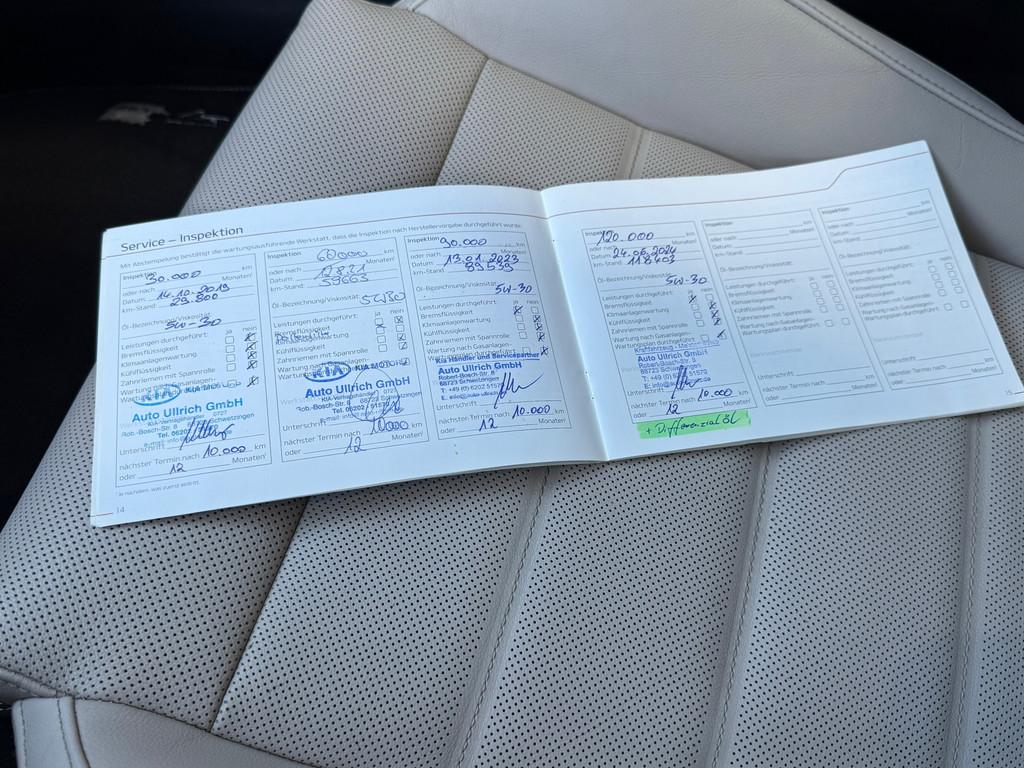 Service – Inspektion
Mit Abstempelung bestätigt die wartungsausführende Werkstatt, dass die Inspektion nach Herstellervorgabe durchgeführt wurde.
Inspektion
30.000 km
oder nach Monaten¹
Datum 14.10.2019
km-Stand 29.800
Öl-Bezeichnung/Viskosität:
5W-30
ja nein
Leistungen durchgeführt:
Bremsflüssigkeit
Klimaanlagenwartung
Kühlflüssigkeit
Zahnriemen mit Spannrolle
KIA KIA MOTORS
Auto Ullrich GmbH
KIA-Vertragshändler
Rob.-Bosch-Str. 8
Unterschrift
nächster Termin nach 10.000 km
oder 12 Monaten¹
¹ Je nachdem, was zuerst eintritt.
14
Inspektion
60000 km
oder nach Monaten¹
Datum 12.8.21
km-Stand 59663
Öl-Bezeichnung/Viskosität:
5W30
ja nein
Leistungen durchgeführt:
Bremsflüssigkeit
Kühlflüssigkeit
Zahnriemen mit Spannrolle
Wartung nach Gasanlagen-
KIA KIA MOTORS
Auto Ullrich GmbH
KIA-Vertragshändler
Rob.-Bosch-Str. 8
Tel. 06202 / 51570
nächster Termin nach 10000 km
oder 12 Monaten¹
Inspektion
90.000 km
oder nach Monaten¹
Datum 13.01.2023
km-Stand 89539
Öl-Bezeichnung/Viskosität:
5W-30
ja nein
Leistungen durchgeführt:
Bremsflüssigkeit
Klimaanlagenwartung
Kühlflüssigkeit
Zahnriemen mit Spannrolle
Wartung nach Gasanlagen-
Kia Händler und Servicepartner
Auto Ullrich GmbH
Robert-Bosch-Str. 8
68723 Schwetzingen
T: +49 (0) 6202 51570
Unterschrift
nächster Termin nach 10.000 km
oder 12 Monaten¹
Inspektion
120.000 km
oder nach Monaten¹
Datum 24.06.2024
km-Stand 118403
Öl-Bezeichnung/Viskosität:
5W-30
ja nein
Leistungen durchgeführt:
Bremsflüssigkeit
Klimaanlagenwartung
Kühlflüssigkeit
Zahnriemen mit Spannrolle
Wartung nach Gasanlagen-
Wartungsplan durchgeführt:
Auto Ullrich GmbH
Robert-Bosch-Str. 8
68723 Schwetzingen
T: +49 (0) 6202 51570
Unterschrift
nächster Termin nach 10.000 km
oder 12 Monaten¹
+ Differenzial Öl
Inspektion
km
oder nach Monaten¹
Datum
km-Stand
Öl-Bezeichnung/Viskosität:
ja nein
Leistungen durchgeführt:
Bremsflüssigkeit
Klimaanlagenwartung
Kühlflüssigkeit
Zahnriemen mit Spannrolle
Wartung nach Gasanlagen-
Wartungsplan durchgeführt:
Unterschrift
nächster Termin nach km
oder Monaten¹
Inspektion
km
oder nach Monaten¹
Datum
km-Stand
Öl-Bezeichnung/Viskosität:
ja nein
Leistungen durchgeführt:
Bremsflüssigkeit
Klimaanlagenwartung
Kühlflüssigkeit
Zahnriemen mit Spannrolle
Wartung nach Gasanlagen-
Wartungsplan durchgeführt:
Unterschrift
nächster Termin nach km
oder Monaten¹
15